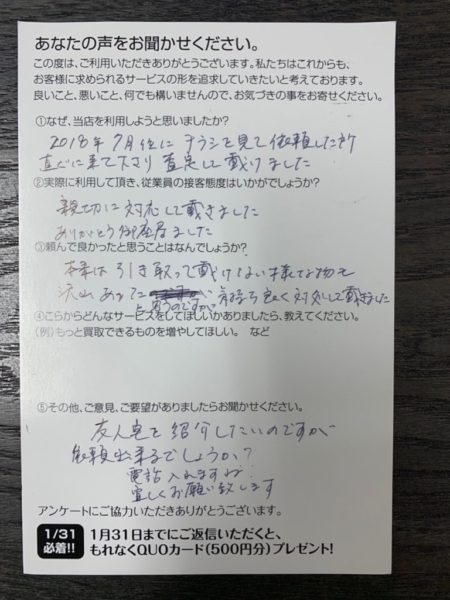 あなたの声をお聞かせください。
この度は、ご利用いただきありがとうございます。私たちはこれからも、
お客様に求められるサービスの形を追求していきたいと考えております。
良いこと、悪いこと、何でも構いませんので、お気づきの事をお寄せください。
①なぜ、当店を利用しようと思いましたか?
2018年7月位にチラシを見て依頼した所
直ぐに来て下さり査定して戴けました
②実際に利用して頂き、従業員の接客態度はいかがでしょうか?
親切に対応して戴きました
ありがとう御座居ました
③頼んで良かったと思うことはなんでしょうか?
本来は引き取って戴けない様な物も
沢山あったと思うのですが気持ち良く対処して戴きました
④こらからどんなサービスをしてほしいかありましたら、教えてください。
(例)もっと買取できるものを増やしてほしい。 など
⑤その他、ご意見、ご要望がありましたらお聞かせください。
友人宅を紹介したいのですが
依頼出来るでしょうか?
電話入れますね
宜しくお願い致します
アンケートにご協力いただきありがとうございます。
1/31
必着!!
1月31日までにご返信いただくと、
もれなくQUOカード(500円分)プレゼント!